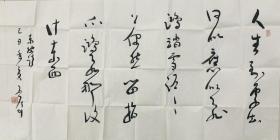 人生到处知
何似应似飞
鸿踏雪泥々
上偶然留指
爪鸿飞那复
计东西
东坡诗